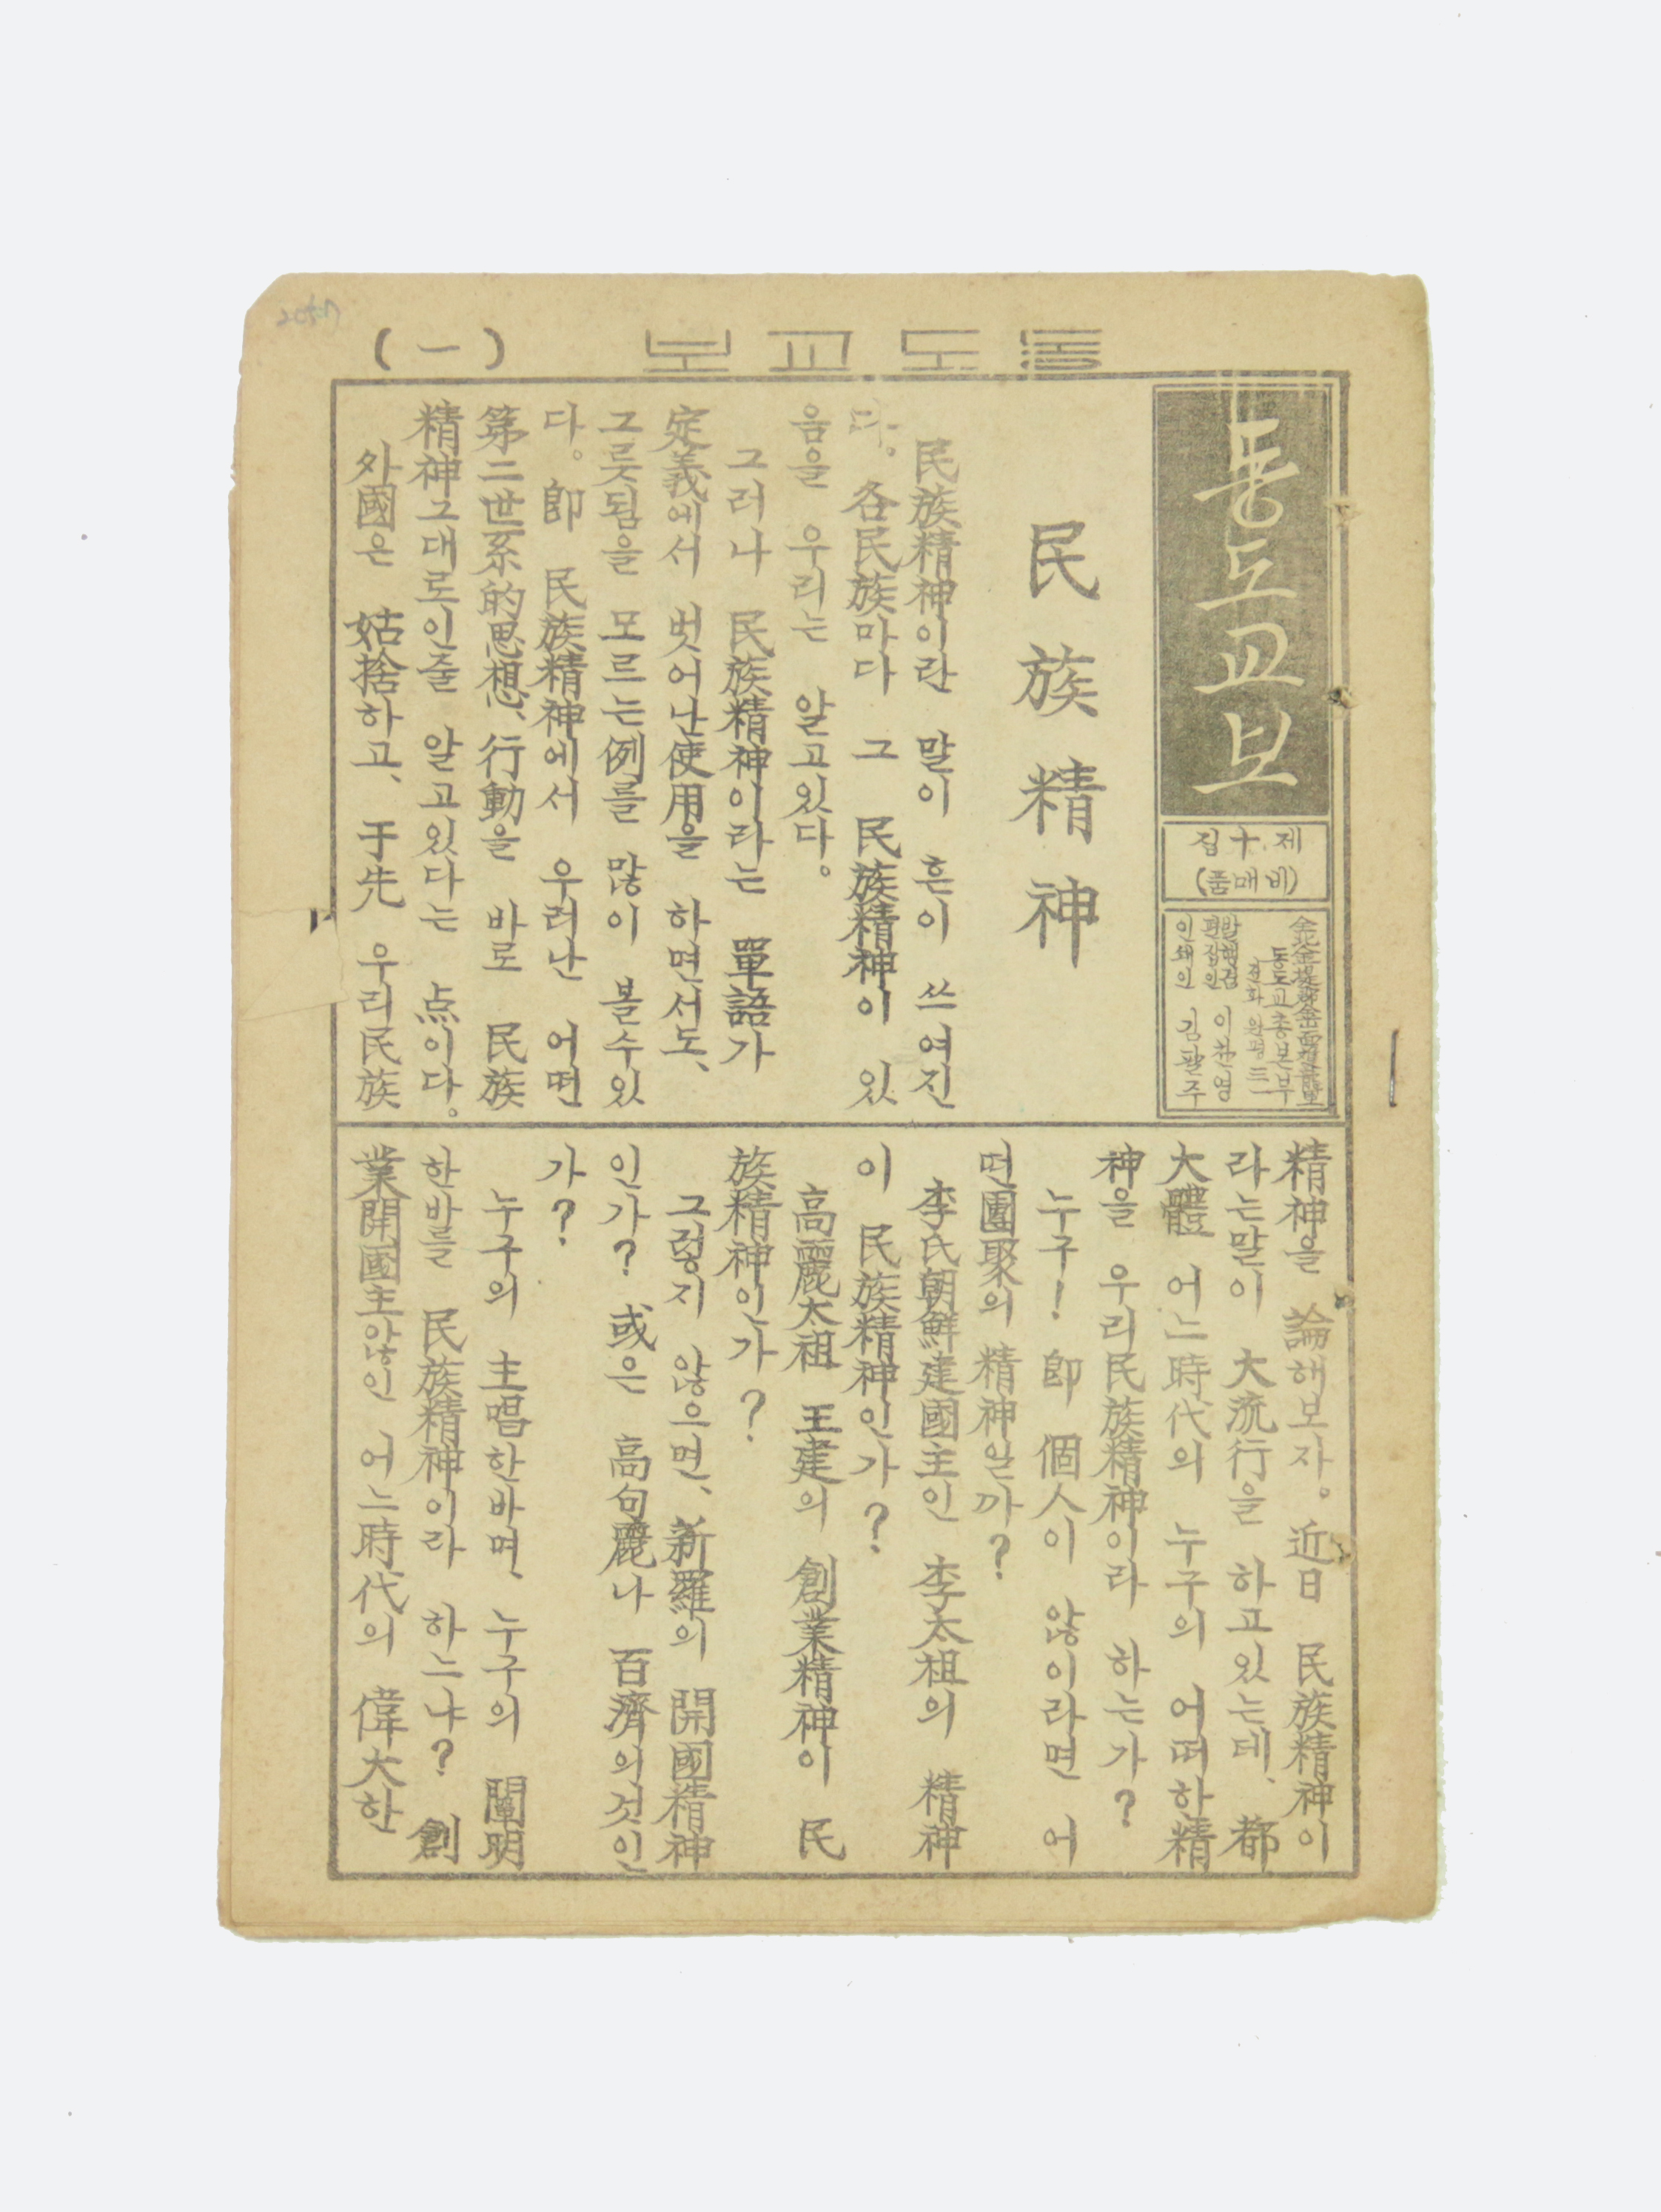 동도교보 (一)
동도교보
제十집
(비매품)
동도교총본부
전화 원평 三
발행겸
편집인 이찬영
인쇄인 김팔주
民族精神
民族精神이란 말이 흔이 쓰여진
다。各民族마다 그 民族精神이 있
음을 우리는 알고있다。
그러나 民族精神이라는 單語가
定義에서 벗어난使用을 하면서도、
그릇됨을 모르는例를 많이 볼수있
다。卽 民族精神에서 우러난 어떤
第二世系的思想、行動을 바로 民族
精神그대로인줄 알고있다는 点이다。
外國은 姑捨하고、于先 우리民族
精神을 論해보자。近日 民族精神이
라는말이 大流行을 하고있는데、都
大體 어느時代의 누구의 어떠한精
神을 우리民族精神이라 하는가?
누구! 卽 個人이 않이라면 어
떤團聚의 精神일까?
李氏朝鮮建國主인 李太祖의 精神
이 民族精神인가?
高麗太祖 王建의 創業精神이 民
族精神인가?
그렇지 않으면、新羅의 開國精神
인가? 或은 高句麗나 百濟의것인
가?
누구의 主唱한바며、누구의 闡明
한바를 民族精神이라 하느냐? 創
業開國主않인 어느時代의 偉大한